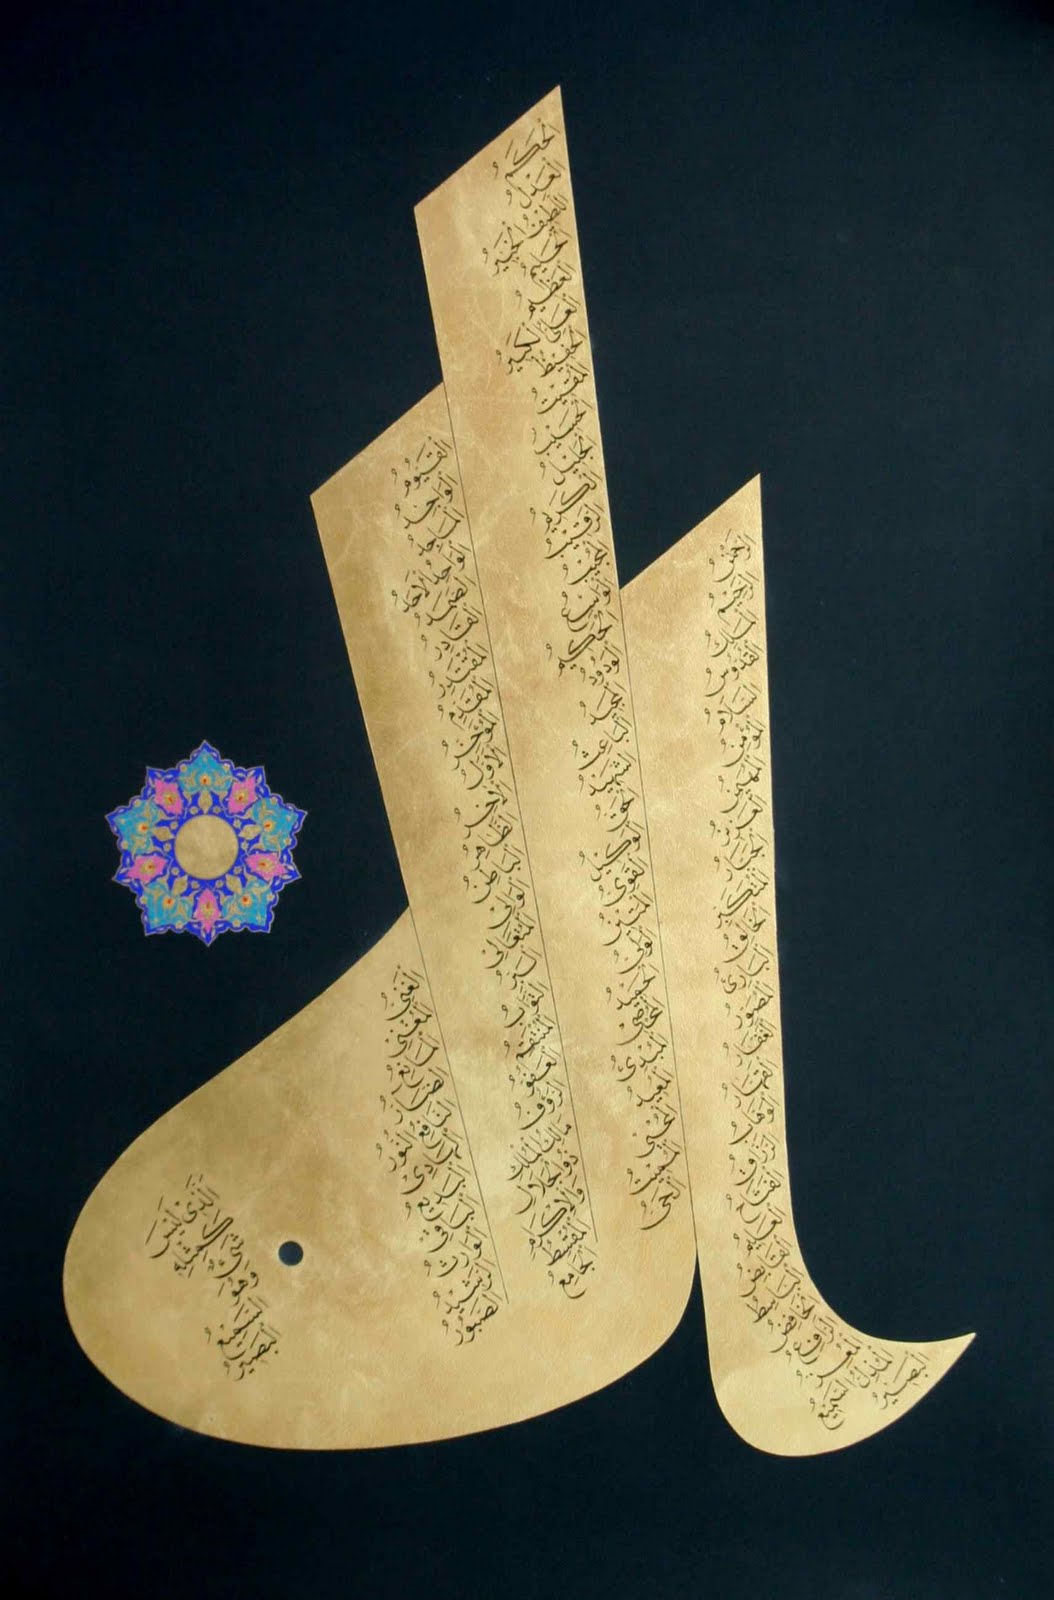 الله
الرحمن
الرحيم
الملك
القدوس
السلام
المؤمن
المهيمن
العزيز
الجبار
المتكبر
الخالق
البارئ
المصور
الغفار
القهار
الوهاب
الرزاق
الفتاح
العليم
القابض
الباسط
الخافض
الرافع
المعز
المذل السميع
البصير
الحكم
العدل
اللطيف الخبير
الحليم
العظيم
العلي الكبير
الحفيظ
المقيت
الحسيب
الجليل
الكريم
الرقيب
المجيب
الواسع
الحكيم
الودود
المجيد
الباعث
الشهيد
الحق
الوكيل
القوي
المتين
الولي
الحميد
المحصي
المبدئ
المعيد
المحيي
المميت
الحي
القيوم
الواجد
الماجد
الواحد الأحد
الصمد
القادر
المقتدر
المقدم
المؤخر
الأول
الآخر
الظاهر
الباطن
الوالي
المتعالي
البر
التواب
المنتقم
العفو
الرؤوف
مالك الملك
ذو الجلال
والإكرام
المقسط
الجامع
الغني
المغني
المانع
الضار
النافع النور
الهادي
البديع
الباقي
الوارث
الرشيد
الصبور
الذي ليس
كمثله
شيء
وهو
السميع
البصير